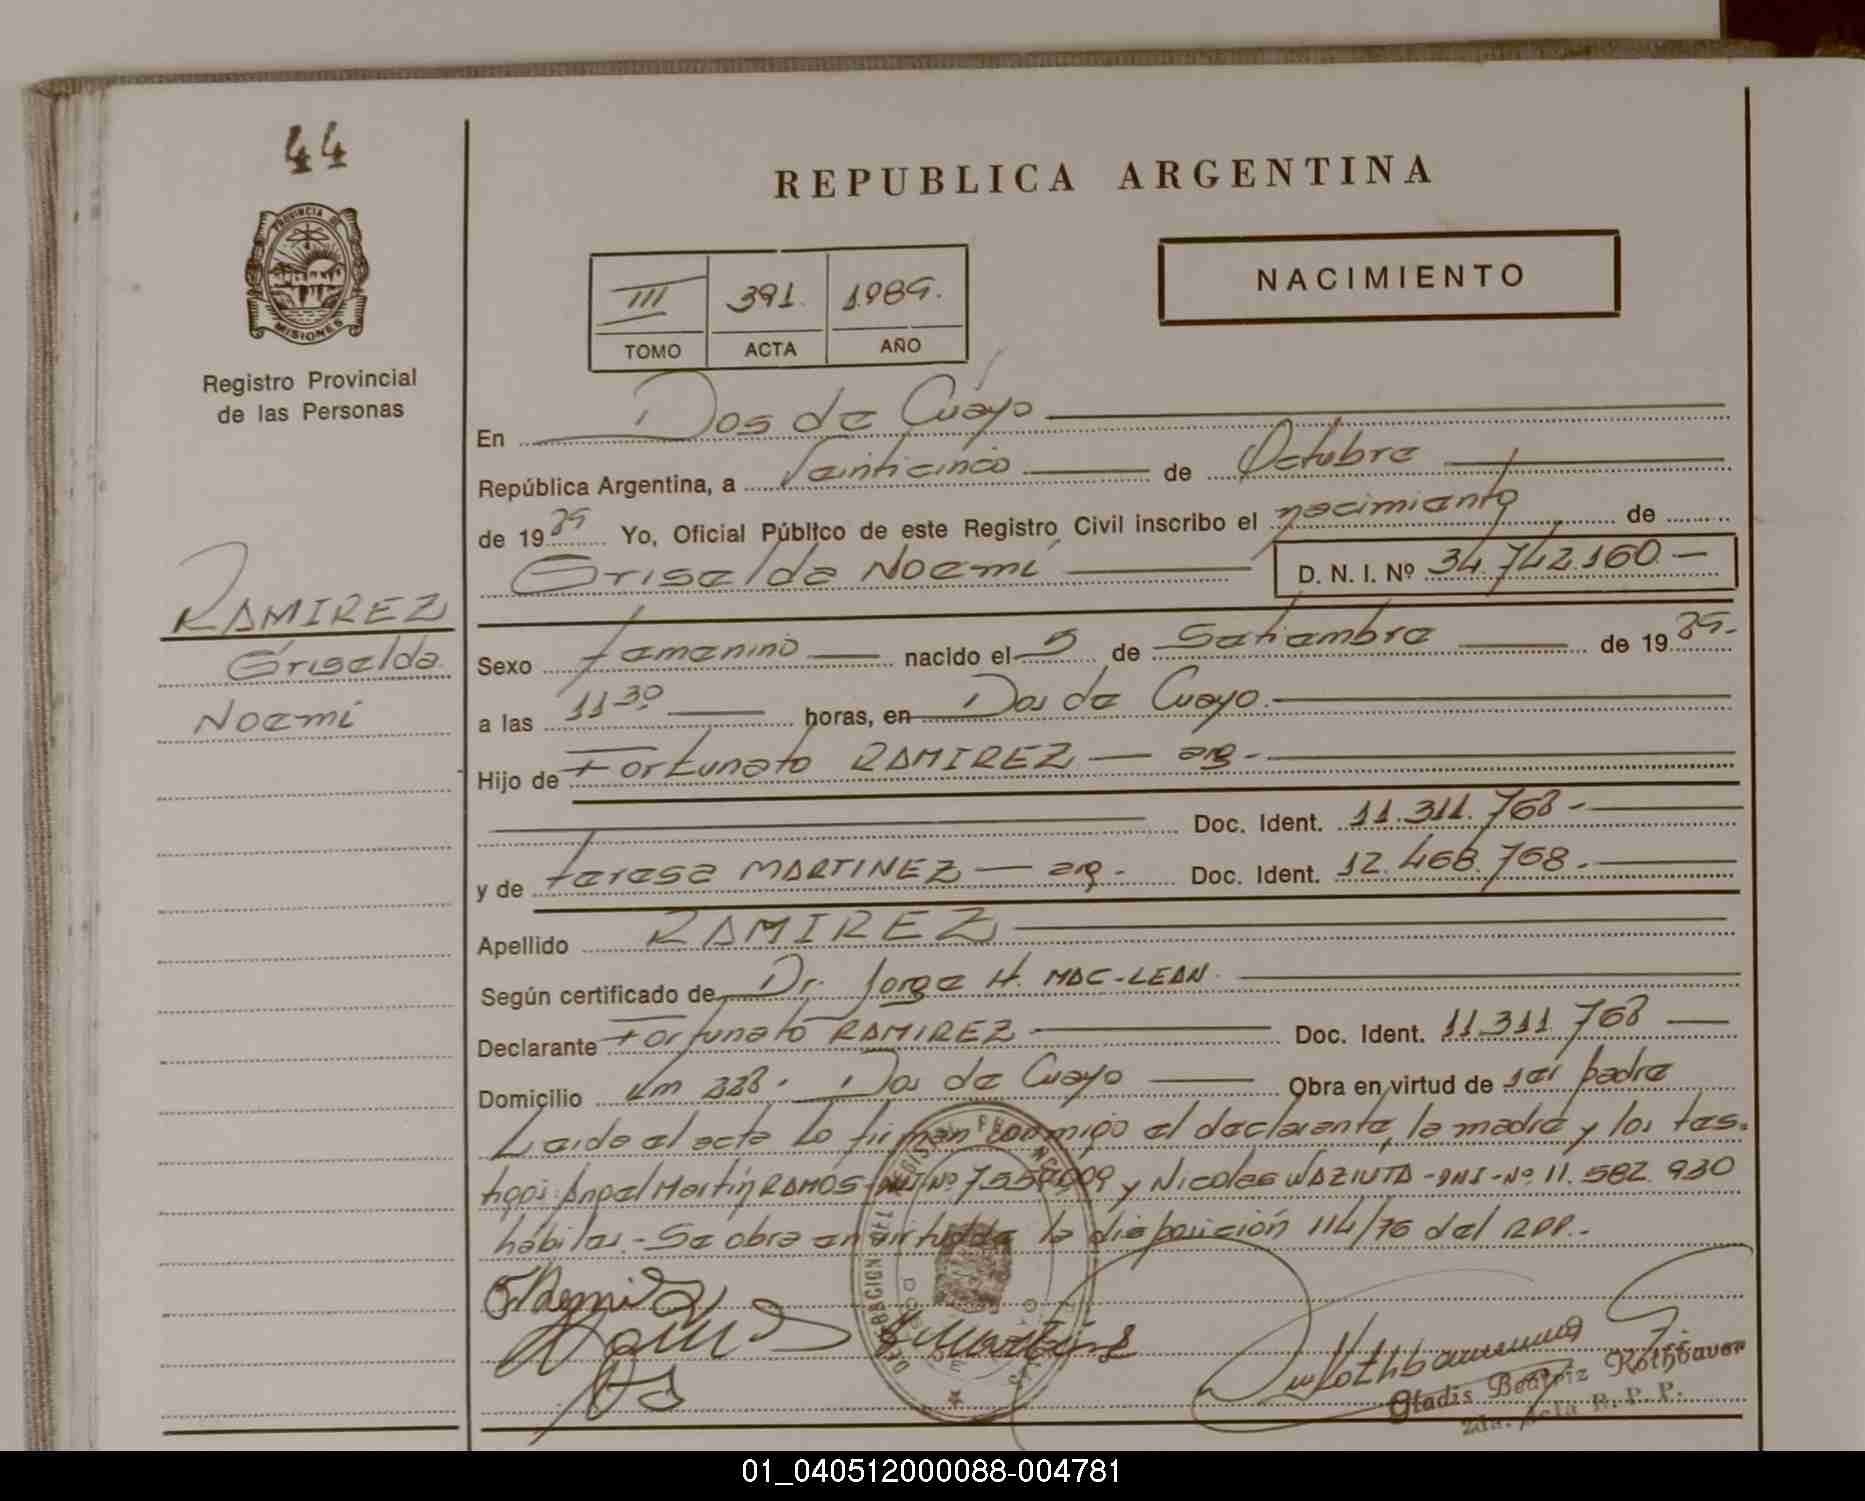 44
PROVINCIA DE
MISIONES
Registro Provincial
de las Personas
RAMIREZ
Griselda
Noemí
REPUBLICA ARGENTINA
NACIMIENTO
III 391. 1989.
TOMO ACTA AÑO
En Dos de Cuayo
República Argentina, a Veinticinco de Octubre
de 1989 Yo, Oficial Público de este Registro Civil inscribo el nacimiento de
Griselda Noemí D. N. I. Nº 34.742.160.-
Sexo femenino nacido el 5 de Setiembre de 1989.-
a las 11 30 horas, en Dos de Cuayo.
Hijo de Fortunato RAMIREZ - arg.-
Doc. Ident. 11.311.768-
y de teresa MARTINEZ - arg.- Doc. Ident. 12.468.768.-
Apellido RAMIREZ
Según certificado de Dr. Jorge H. MAC-LEAN.
Declarante Fortunato RAMIREZ Doc. Ident. 11.311.768
Domicilio Km 228. Dos de Cuayo Obra en virtud de ser padre
Leida el acta lo firman conmigo el declarante, la madre y los tes-
tigos: Angel Martín RAMOS- Nº 7.550.009 y Nicolas WAZIUTA -DNI-Nº 11.582.930
hábiles.- Se obra en virtud de la disposición 114/76 del RPP.-
Gladis Beatriz Rothbauer
R. P. P.
01_040512000088-004781